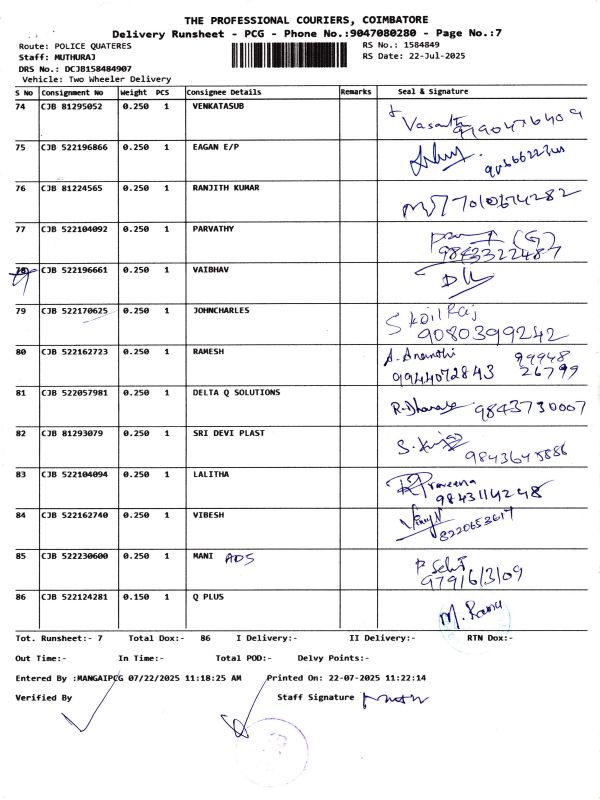 THE PROFESSIONAL COURIERS, COIMBATORE
Delivery Runsheet - PCG - Phone No.:9047080280 - Page No.:7
Route: POLICE QUATERES RS No.: 1584849
Staff: MUTHURAJ RS Date: 22-Jul-2025
DRS No.: DCJB158484907
Vehicle: Two Wheeler Delivery
S No Consignment No Weight PCS Consignee Details Remarks Seal & Signature
74 CJB 81295052 0.250 1 VENKATASUB
75 CJB 522196866 0.250 1 EAGAN E/P
76 CJB 81224565 0.250 1 RANJITH KUMAR 7010674282
77 CJB 522104092 0.250 1 PARVATHY
9843322487
78 CJB 522196661 0.250 1 VAIBHAV
79 CJB 522170625 0.250 1 JOHNCHARLES
9080399242
80 CJB 522162723 0.250 1 RAMESH A. Ananthi 99948
9944072843 26799
81 CJB 522057981 0.250 1 DELTA Q SOLUTIONS 9843730007
82 CJB 81293079 0.250 1 SRI DEVI PLAST
83 CJB 522104094 0.250 1 LALITHA Praveena
9843114248
84 CJB 522162740 0.250 1 VIBESH
8220653617
85 CJB 522230600 0.250 1 MANI ADS
86 CJB 522124281 0.150 1 Q PLUS M. Rama
Tot. Runsheet:- 7 Total Dox:- 86 I Delivery:- II Delivery:- RTN Dox:-
Out Time:- In Time:- Total POD:- Delvy Points:-
Entered By :MANGAIPCG 07/22/2025 11:18:25 AM Printed On: 22-07-2025 11:22:14
Verified By Staff Signature